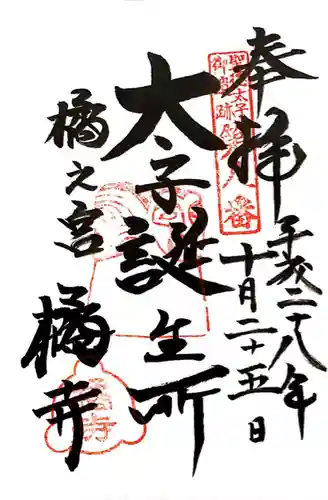 奉拝
平成二十八年
十月二十五日
聖徳太子
御遺跡第八番
太子誕生所
橘之宮
橘寺